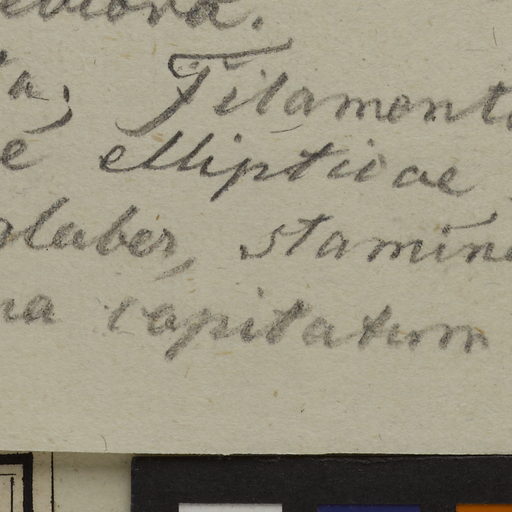 a; Filament
e ellipticae,
glaber, stamin
na capitatum